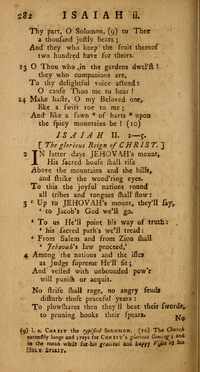 282 ISAIAH ii.
Thy part, O Solomon, (9) to Thee
a thousand justly bears;
And they who keep the fruit thereof
two hundred have for theirs.
13 O Thou who in the gardens dwel'st!
they who companions are,
To thy delightful voice attend:
O cause Thou me to hear!
14 Make haste, O my Beloved one,
like a swift roe to me;
And like a fawn of harts upon
the spicy mountains be! (10)
ISAIAH II. 2—5.
[The glorious Reign of CHRIST.]
2 IN latter days JEHOVAH's mount,
His sacred house shall rise
Above the mountains and the hills,
and strike the wond'ring eyes.
To this the joyful nations round
all tribes and tongues shall flow:
3 ' Up to JEHOVAH's mount, they'll say,
' to Jacob's God we'll go.
' To us He'll point his way of truth:
' his sacred path we'll tread:
' From Salem and from Zion shall
' Jehovah's law proceed,'
4 Among the nations and the isles
as Judge supreme He'll sit;
And vested with unbounded pow'r
will punish or acquit.
No strife shall rage, no angry feuds
disturb those peaceful years:
To plowshares then they'll beat their swords,
to pruning hooks their spears.
No
(9) i. e. CHRIST the typified SOLOMON. (10) The Church
earnestly longs and prays for CHRIST's glorious coming; and
in the mean while for his gracious and happy Visits of his
HOLY SPIRIT.